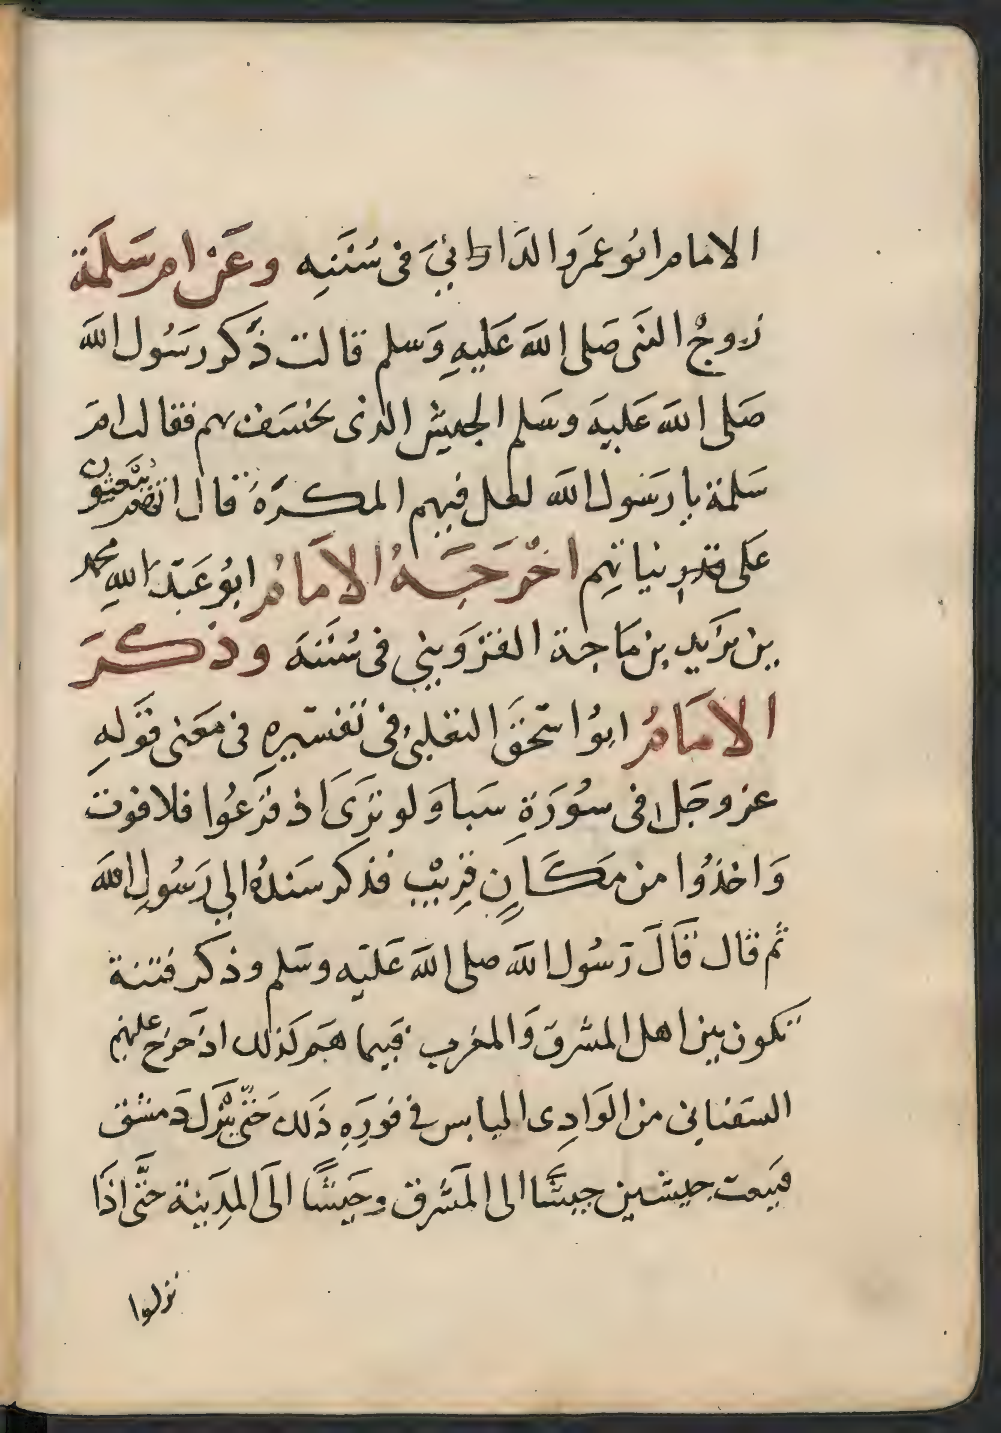 الامام ابو عمرو الدارائي في سُنَنِه وعَن ام سَلَمَة
زوجُ النبي صَلى الله عَليهِ وَسلم قالت ذَكر رَسُول الله
صَلى الله عَليهَ وسَلم الجيش الذى يخسَف بهم فقالت امَ
سَلمة يا رسَول الله لعل فيهم المكرَهَ قال انهم يُبْعَثون
عَلى قدر نياتهم اخْرَجَهُ الامَامُ ابوُ عَبْد اللهِ محمد
بن يَزيد بن مَاجة القزوَيني في سُنَنَه وذكرَ
الامَامُ ابوُ اسَحقَ الثعلبىُ في تفسَيره في مَعَنى قوَلهِ
عز وجَل فى سوُرَةِ سَبا وَلو تَرَىَ اذ فَزِعُوا فلا فوت
وَاخذوُا من مَكَانٍ قريْب فذكر سَندهُ الى رَسُولِ الله
ثم قال قَالَ رَسُول الله صلى الله عَليَه وسَلم وذكر فتنة
تكون بين اهل المشرق وَالمغرب فبَيما هَم كذلك اذ خَرج عليهم
السَفياني من الوَادِى اليابس في فورَهِ ذَلك حَتىّ يَنْزل دَمشق
فيَبعث جيشين جيشًا الى المَشرق وجَيشًا الىَ المدِينة حَتَّى اذَا
نزلوا